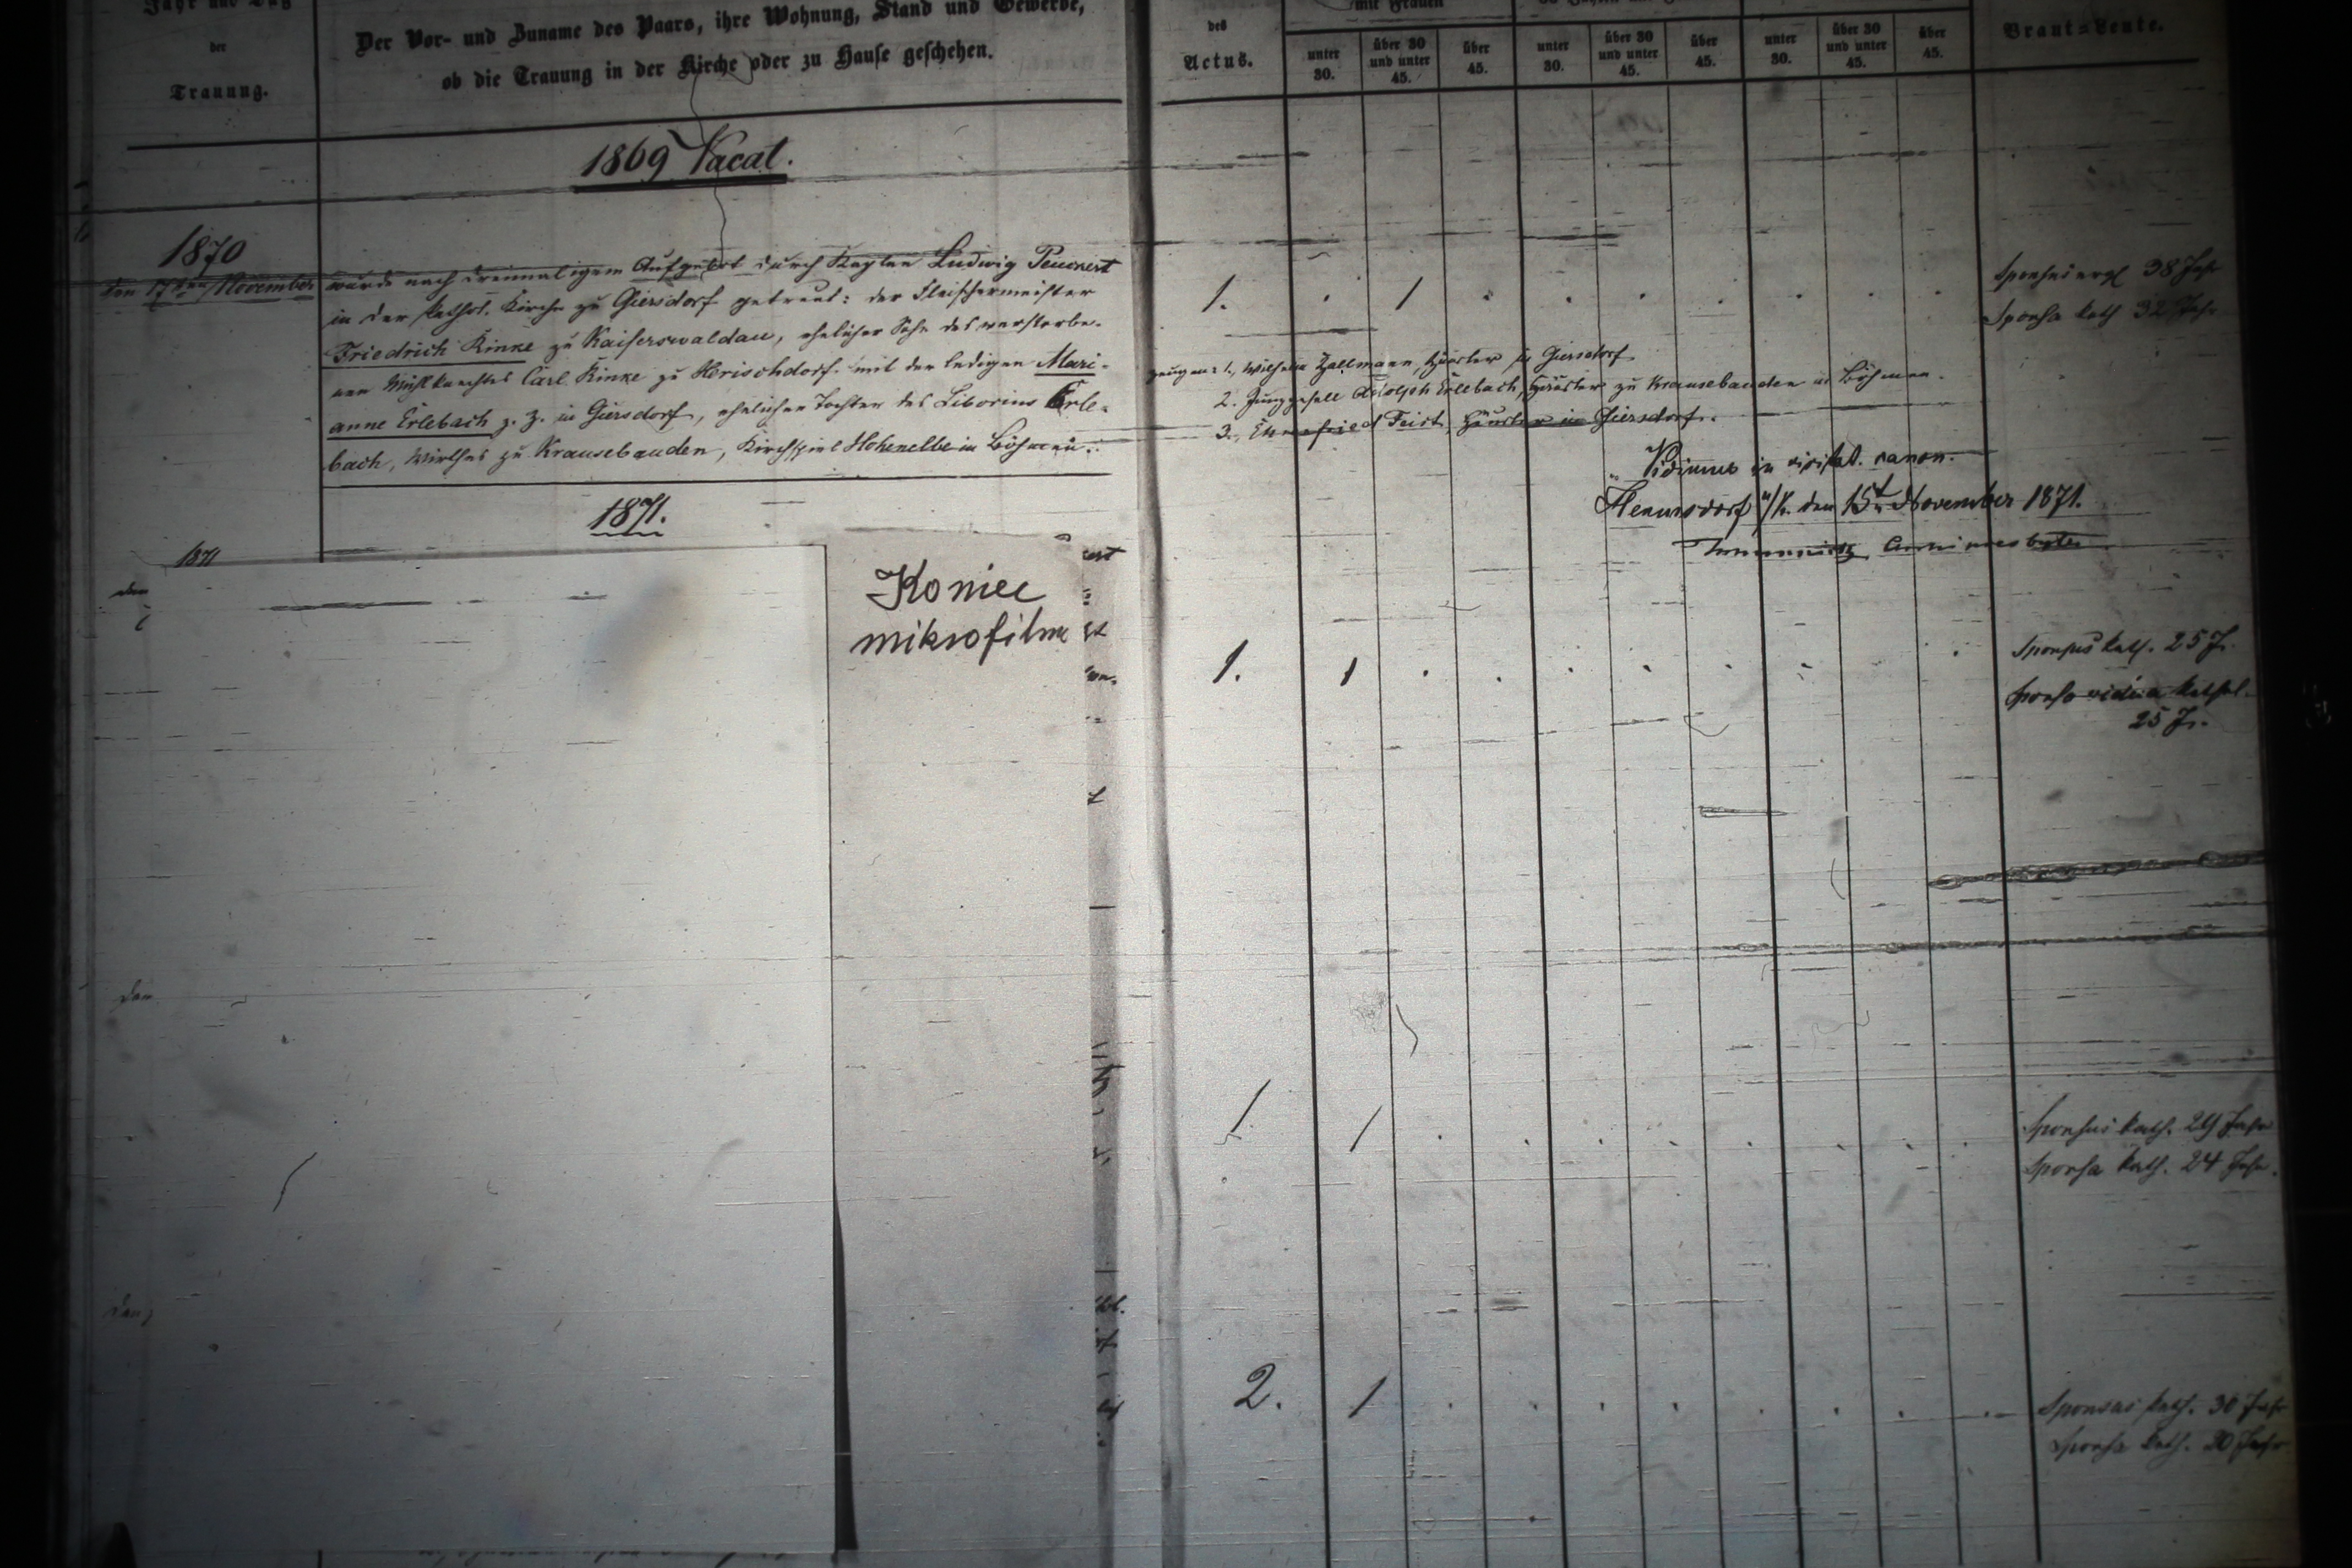 Jahr und Tag
der
Trauung.
Der Vor- und Zuname des Paars, ihre Wohnung, Stand und Gewerbe,
ob die Trauung in der Kirche oder zu Hause geschehen.
des
Actus.
mit Frauen
unter 30.
über 30 und unter 45.
über 45.
unter 30.
über 30 und unter 45.
über 45.
unter 30.
über 30 und unter 45.
über 45.
Braut-Leute.
1869 Vacat.
1870
den 17ten November
wurde nach dreimaligem Aufgebot durch Kaplan Ludwig Peuckert
in der kathol. Kirche zu Giersdorf getraut: der Fleischermeister
Friedrich Rinke zu Kaiserswaldau, ehelicher Sohn des verstorbe-
nen Mühlknechtes Carl Rinke zu Herischdorf mit der ledigen Mari-
anne Erlebach z. Z. in Giersdorf, ehelichen Tochter des Liborius Erle-
bach, Wirthes zu Krausebauden, Kirchspiel Hohenelbe in Böhmen.
1. . 1 . . . . . . .
Sponsus evgl 38 Jahr
Sponsa kath 32 Jahr
Zeugen: 1, Wilhelm Zallmann, Häusler in Giersdorf
2. Junggesell Adolph Erlebach, Häusler zu Krausebauden in Böhmen.
3., Ehrenfried Feist, Häusler in Giersdorf.
Vidimus in visitat. canon.
Hermsdorf u/K. den 15t November 1871.
1871.
1871
den
Koniec
mikrofilmu
1. 1 . . . . . . . .
Sponsus kath. 25 J.
Sponsa vidua kathol.
25 J.
den
1 1 . . . . . . . .
Sponsus kath. 29 Jahr
Sponsa kath. 24 Jahr.
den
2. 1 . . . . . . . .
Sponsus kath. 30 Jahr
Sponsa kath. 20 Jahr